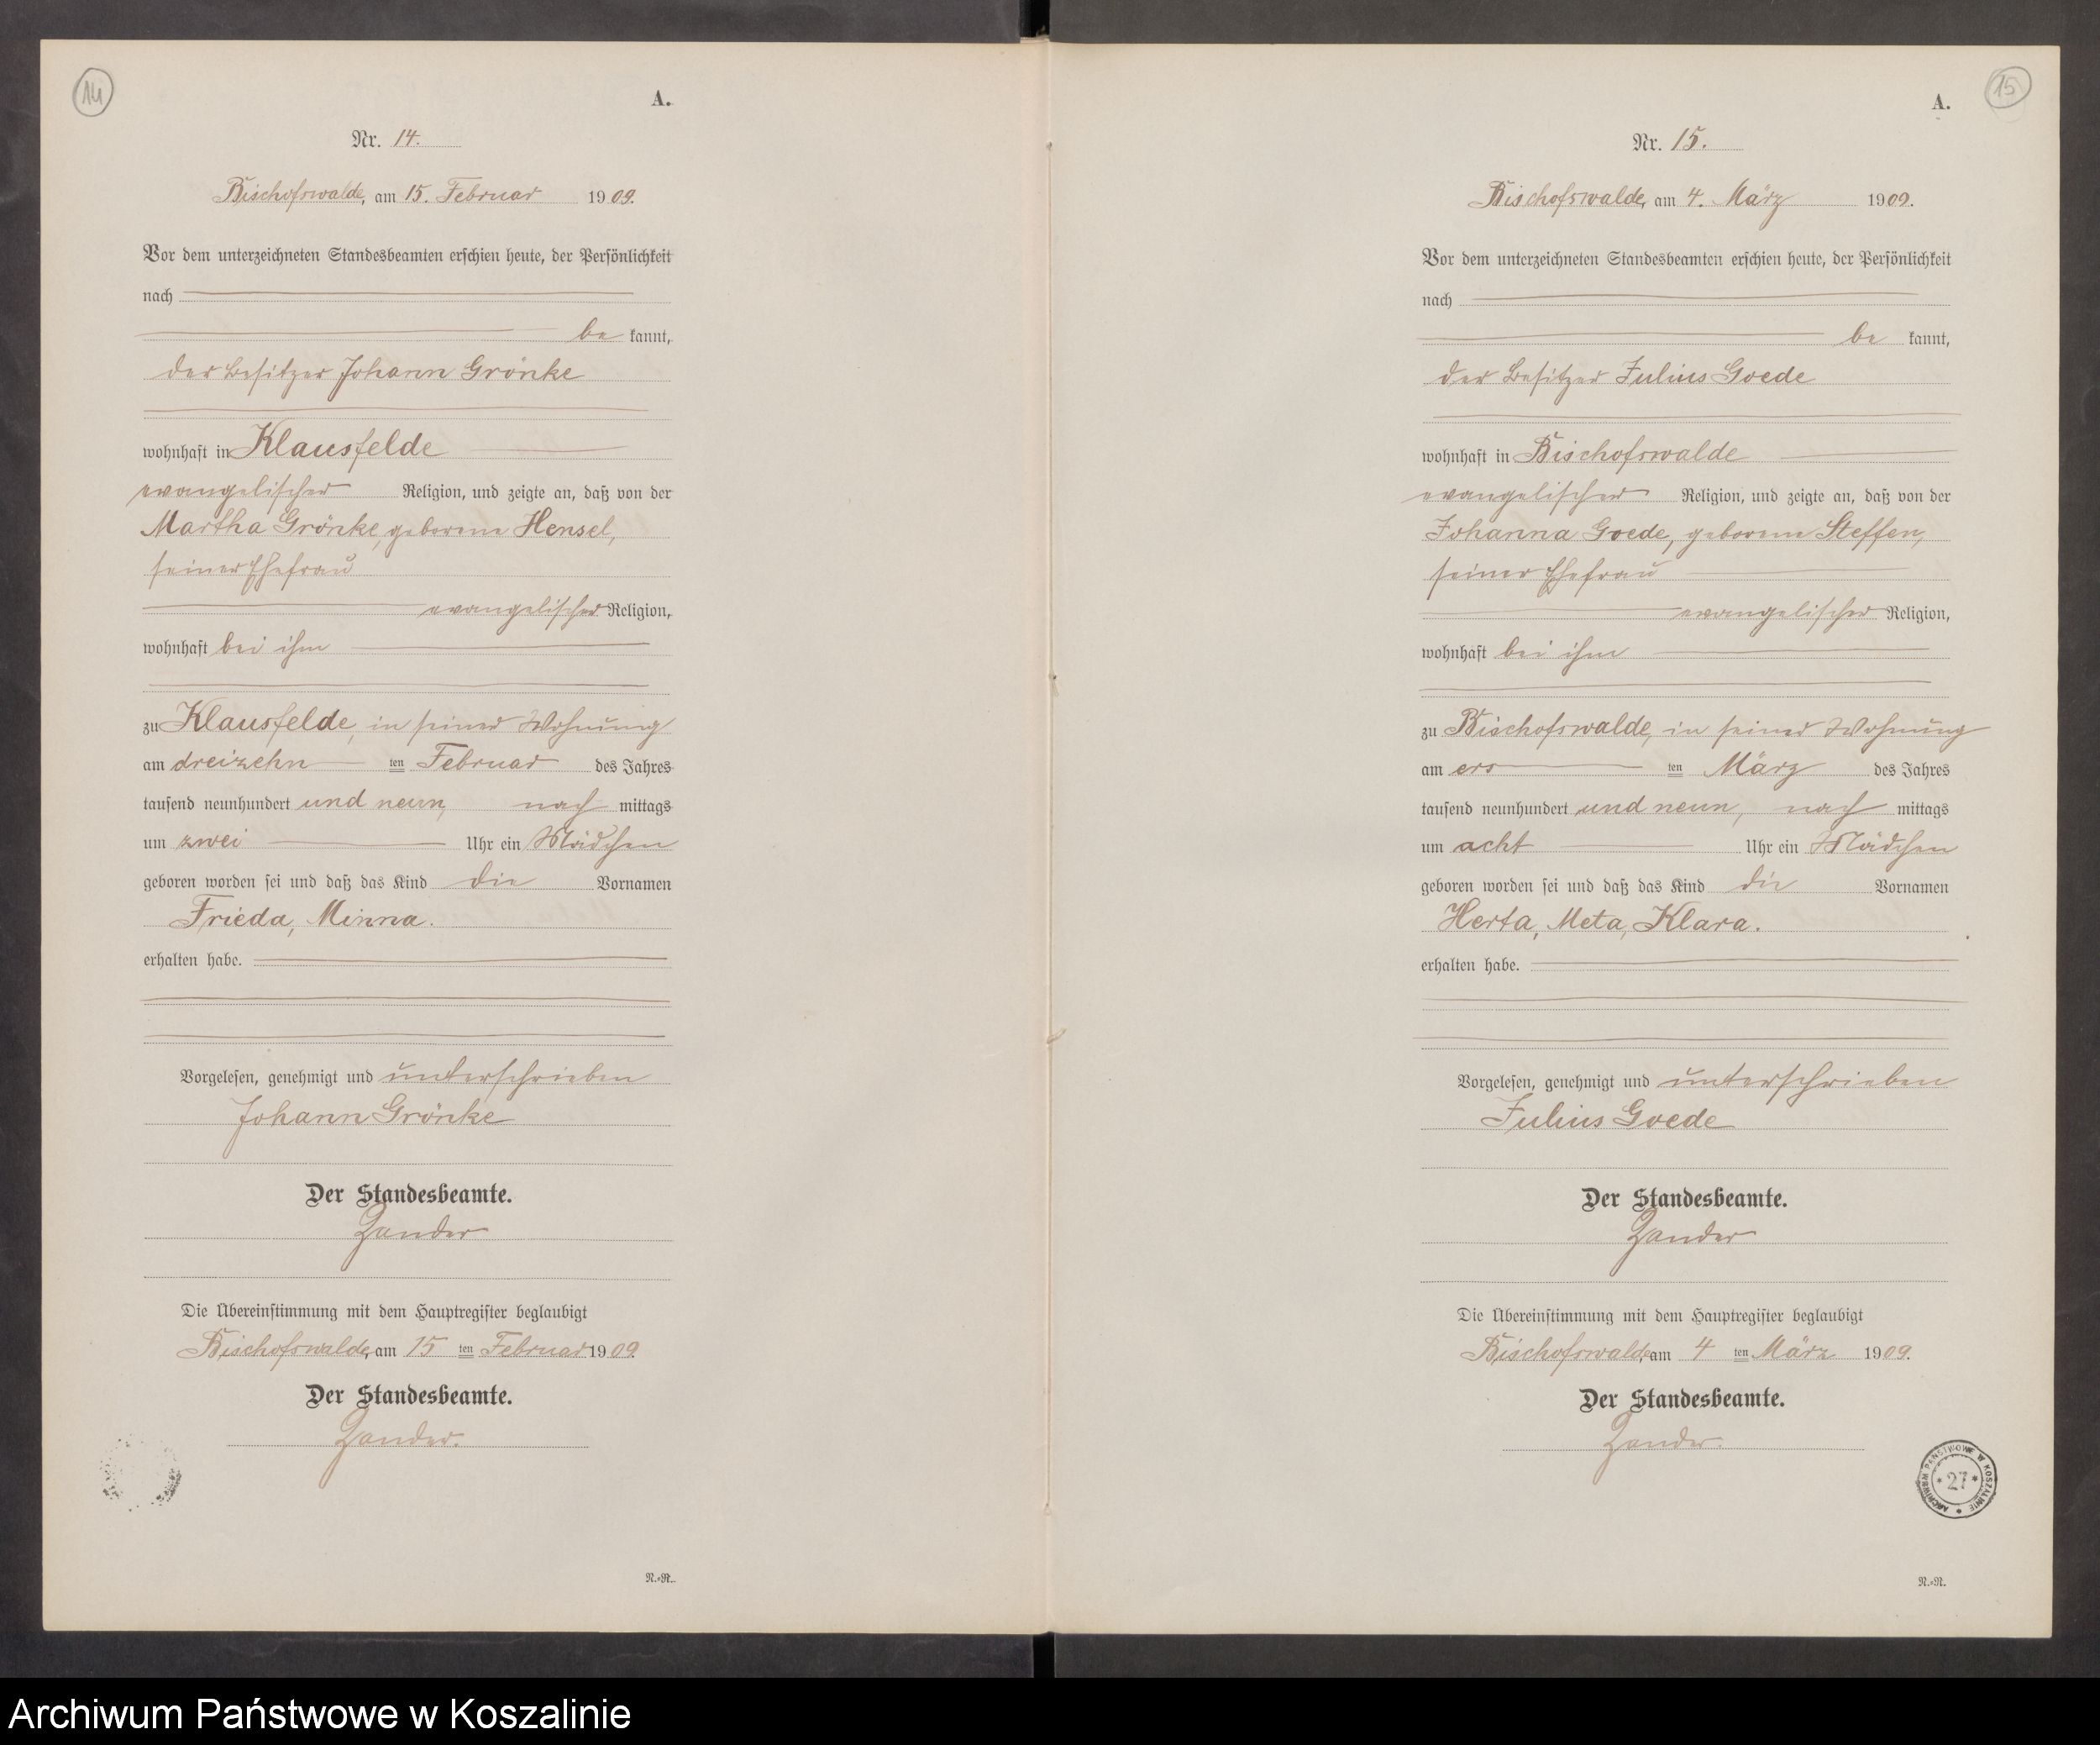 14
A.
Nr. 14.
Bischofswalde, am 15. Februar 1909.
Vor dem unterzeichneten Standesbeamten erschien heute, der Persönlichkeit
nach
be kannt,
der Besitzer Johann Grönke
wohnhaft in Klausfelde
evangelischer Religion, und zeigte an, daß von der
Martha Grönke, geborene Hensel,
seiner Ehefrau
evangelischer Religion,
wohnhaft bei ihm
zu Klausfelde, in seiner Wohnung
am dreizehn ten Februar des Jahres
tausend neunhundert und neun, nach mittags
um zwei Uhr ein Mädchen
geboren worden sei und daß das Kind die Vornamen
Frieda, Minna.
erhalten habe.
Vorgelesen, genehmigt und unterschrieben
Johann Grönke
Der Standesbeamte.
Zander
Die Übereinstimmung mit dem Hauptregister beglaubigt
Bischofswalde, am 15 ten Februar 1909.
Der Standesbeamte.
Zander.
N.=N.
15
A.
Nr. 15.
Bischofswalde, am 4. März 1909.
Vor dem unterzeichneten Standesbeamten erschien heute, der Persönlichkeit
nach
be kannt,
der Besitzer Julius Goede
wohnhaft in Bischofswalde
evangelischer Religion, und zeigte an, daß von der
Johanna Goede, geborene Steffen,
seiner Ehefrau
evangelischer Religion,
wohnhaft bei ihm
zu Bischofswalde, in seiner Wohnung
am ers ten März des Jahres
tausend neunhundert und neun, nach mittags
um acht Uhr ein Mädchen
geboren worden sei und daß das Kind die Vornamen
Herta, Meta, Klara.
erhalten habe.
Vorgelesen, genehmigt und unterschrieben
Julius Goede
Der Standesbeamte.
Zander
Die Übereinstimmung mit dem Hauptregister beglaubigt
Bischofswalde, am 4 ten März 1909.
Der Standesbeamte.
Zander.
ARCHIWUM PAŃSTWOWE W KOSZALINIE
* 27 *
N.=N.
Archiwum Państwowe w Koszalinie